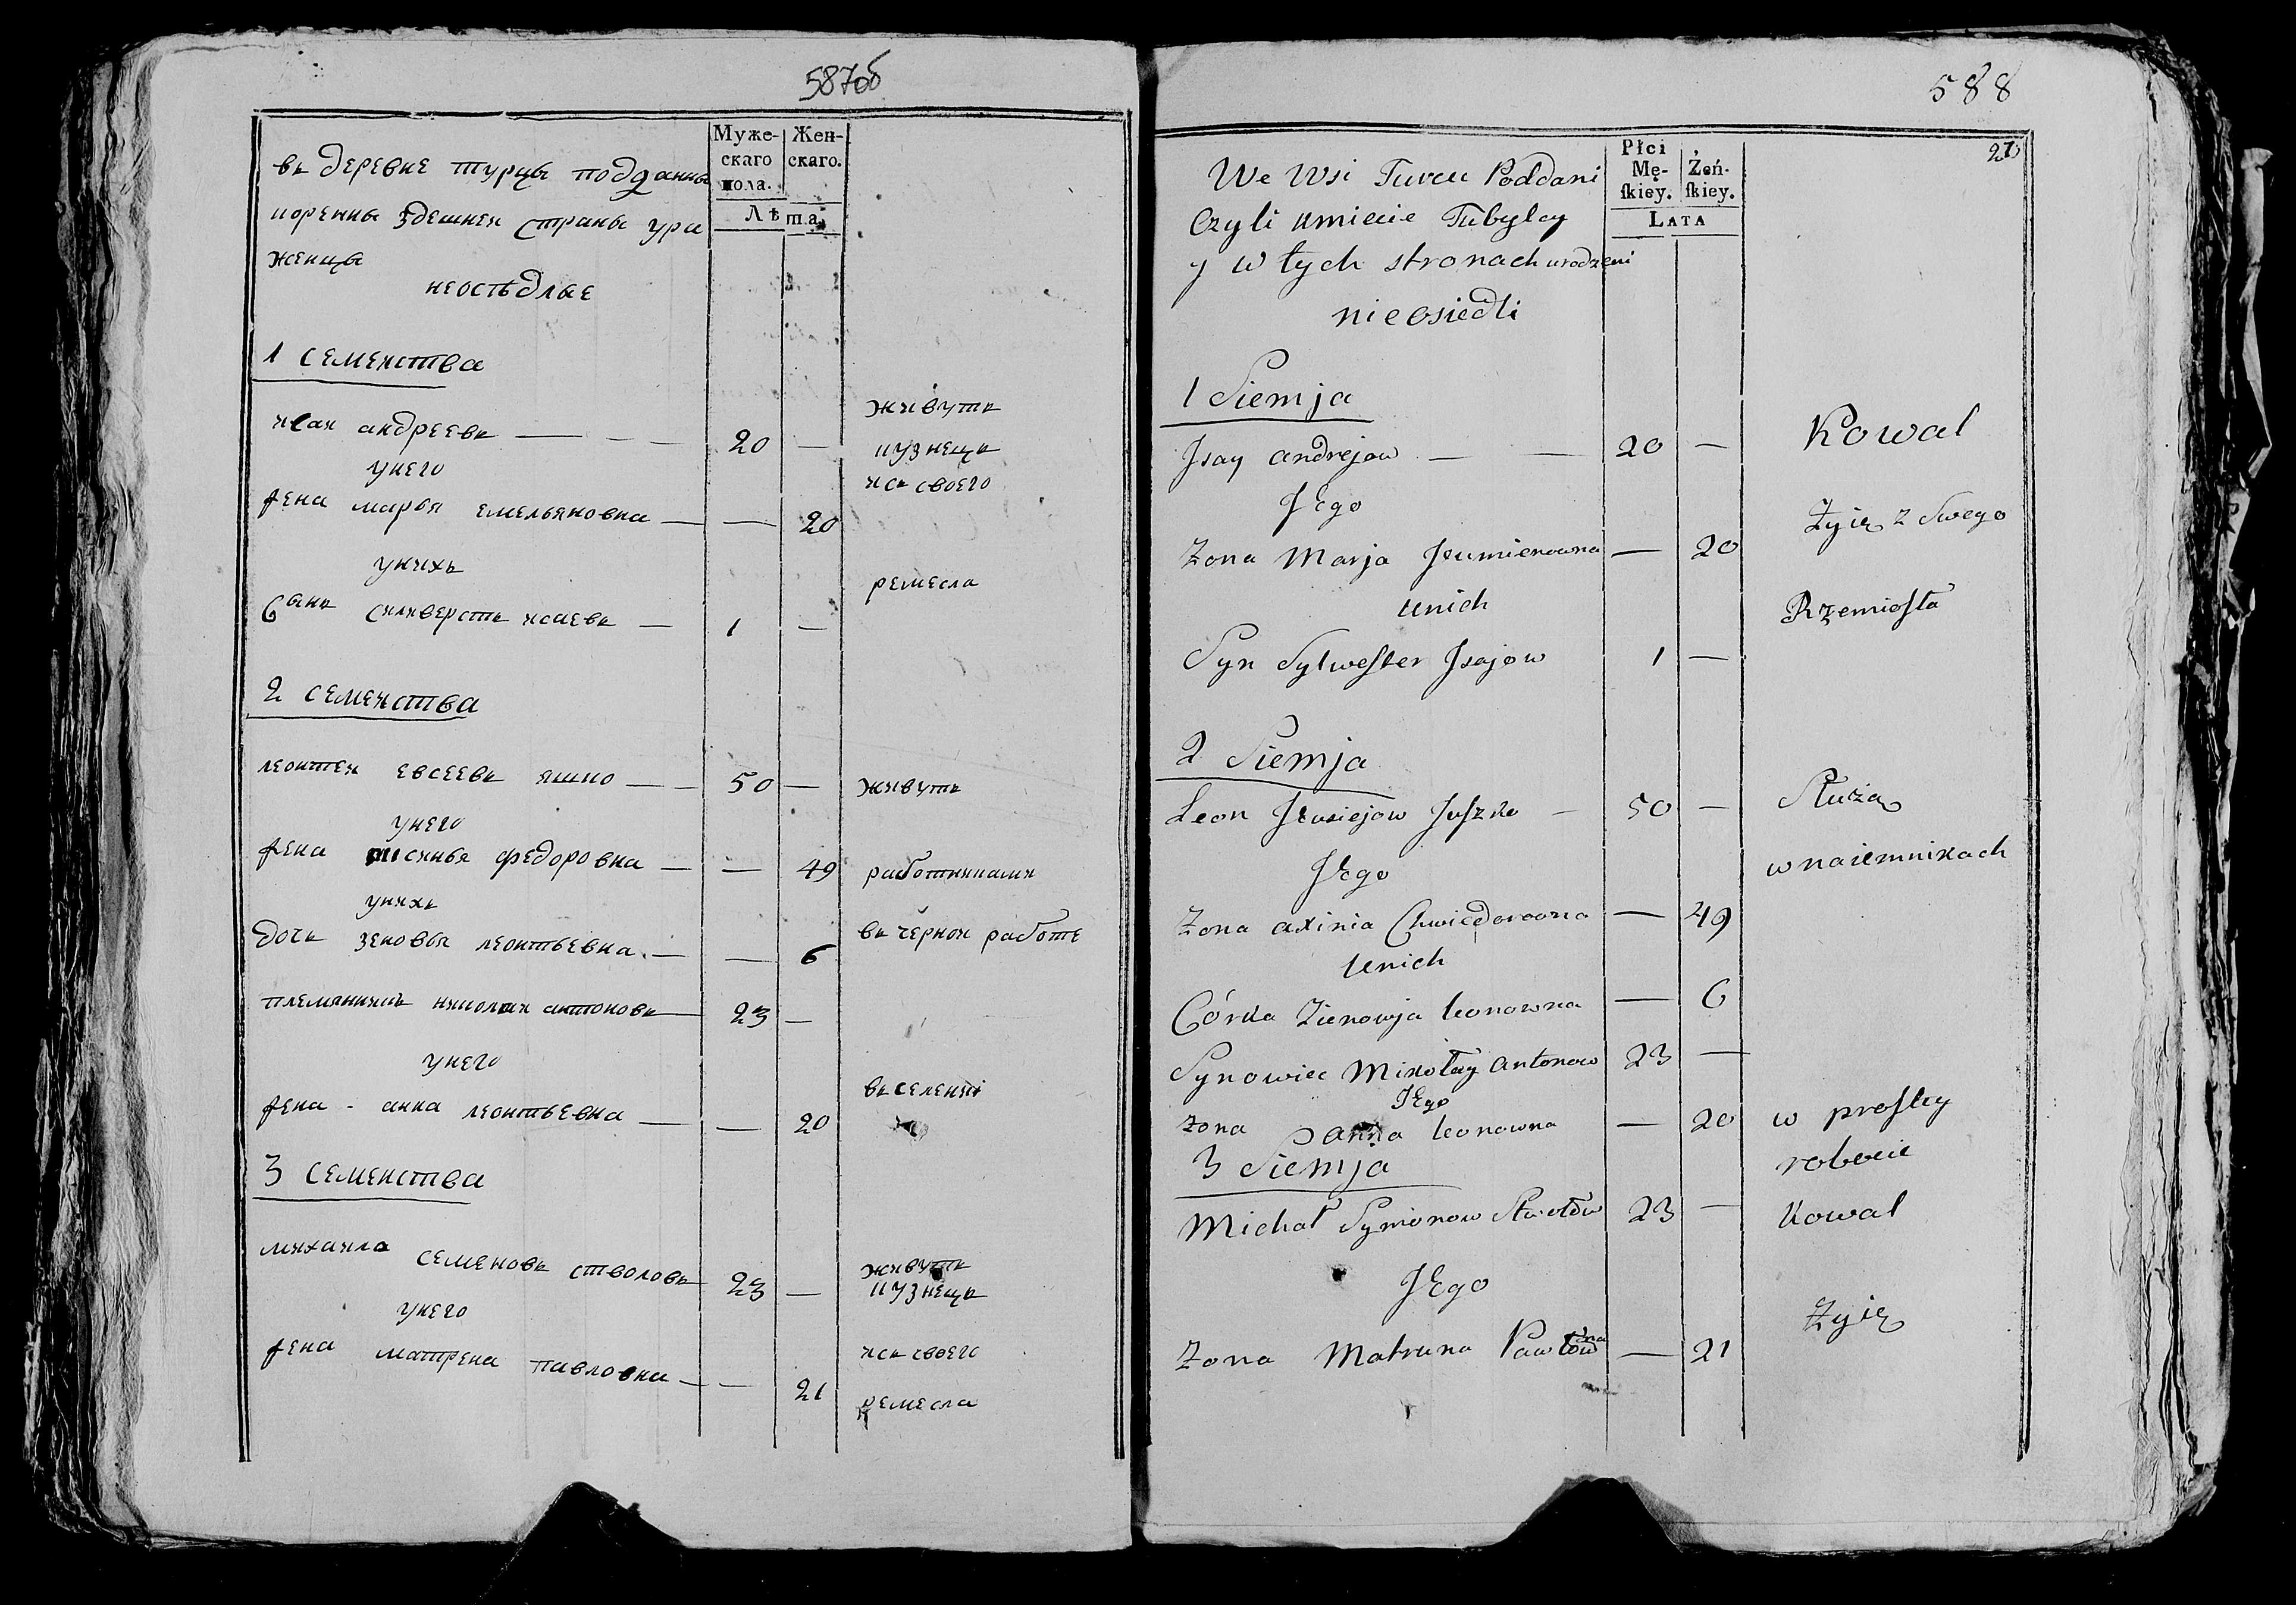 587об
Муже-
скаго
пола.
Жен-
скаго.
Лѣта
въ деревне турцы подданны
коренны здешней страны уро
женцы
неоседлые
1 семейства
исай андреевъ — 20 —
живутъ
кузнецъ
у него
исъ своего
жена марья емельяновна — — 20
у нихъ
ремесла
сынъ силиверстъ исаевъ — 1 —
2 семейства
леонтей евсеевъ юшко — 50 — живутъ
у него
жена аксинья федоровна — — 49 работниками
у нихъ
въ черной работе
дочъ зеновья леонтьевна — — 6
племянникъ николай антоновъ — 23 —
у него
въ селении
жена - анна леонтьевна — — 20
3 семейства
михаила семеновъ стволовъ 23 — живутъ
кузнецъ
у него
исъ своего
жена матрена павловна — — 21
ремесла
588
27
Płci
Mę-
skiey.
Żeń-
skiey.
LATA
We Wsi Turcu Poddani
Czyli Kmiecie Tubylcy
y w tych stronach urodzeni
nieosiedli
1 Siemja
Kowal
Jsay Andrejow — — 20 —
Jego
Żyią z Swego
Zona Marja Jeumienowna — 20
Unich
Rzemiosła
Syn Sylwester Jsajow 1 —
2 Siemja
Służą
Leon Jewsiejow Juszko — 50 —
w naiemnikach
Jego
Zona Axinia Chwiedorowna — 49
Unich
Córka Zienowja Leonowna — 6
Synowiec Mikołay Antonow 23 —
Jego
Zona Anna Leonowna — 20 w prostey
robocie
3 Siemja
Michał Symonow Stwołow 23 — Kowal
Jego
Żyią
Zona Matruna Pawłowna — 21